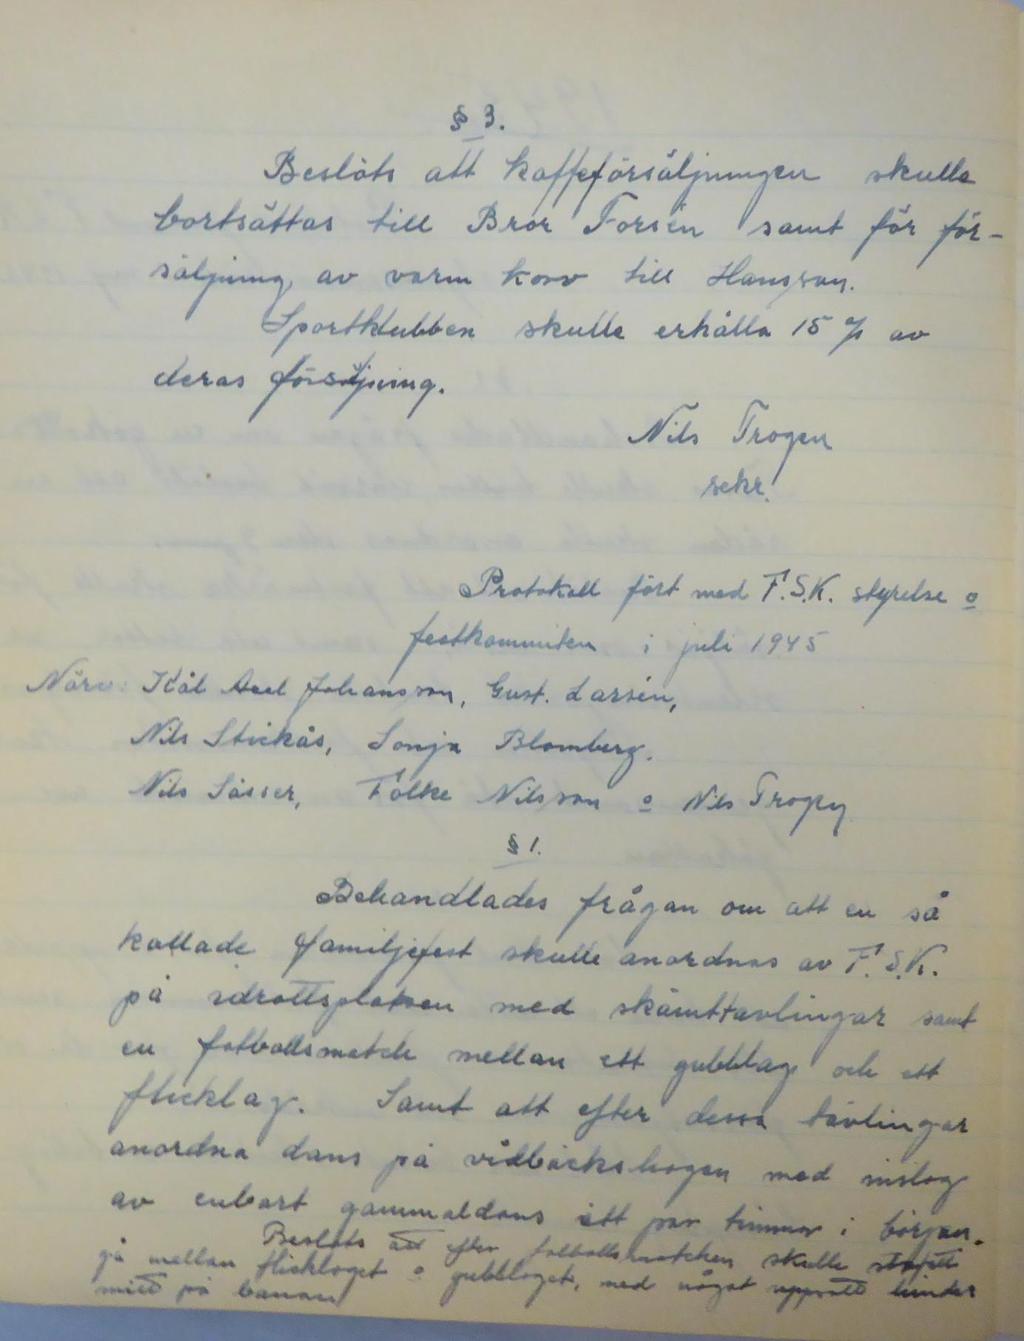 § 3.
Beslöts att kaffeförsäljningen skulle
bortsättas till Bror Forsén samt för för-
säljning av varm korv till Hansson.
Sportklubben skulle erhålla 15 % av
deras försäljning.
Nils Trogen
sekr.
Protokoll fört med F.S.K. styrelse o
festkommiten i juli 1945
Närv: Kål Axel Johansson, Gust. Larsén,
Nils Stickås, Sonja Blomberg.
Nils Sässer, Folke Nilsson o Nils Trogen
§ 1.
Behandlades frågan om att en så
kallade familjefest skulle anordnas av F.S.K.
på idrottsplatsen med skämttävlingar samt
en fotbollsmatch mellan ett gubblag och ett
flicklag. Samt att efter dessa tävlingar
anordna dans på vidbäckshogen med inslag
av enbart gammaldans ett par timmar i början.
Beslöts att efter fotbollsmatchen skulle stafett
gå mellan flicklaget o gubblaget, med något uppsatt hinder
mitt på banan